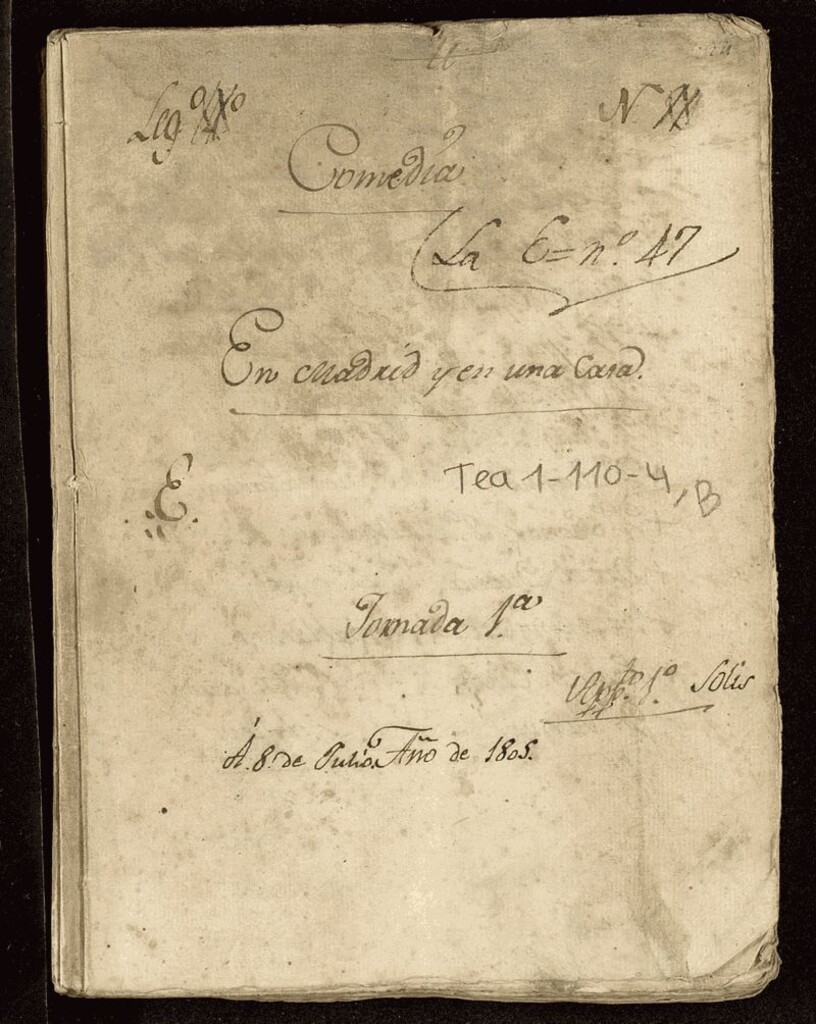 Leg.º
N
Comedia
La E=nº. 47
En Madrid y en una Casa.
Tea 1-110-4, B
E
Jornada 1.ª
Apto. 1º Solis
Á. 8. de Julio. Año de 1805.